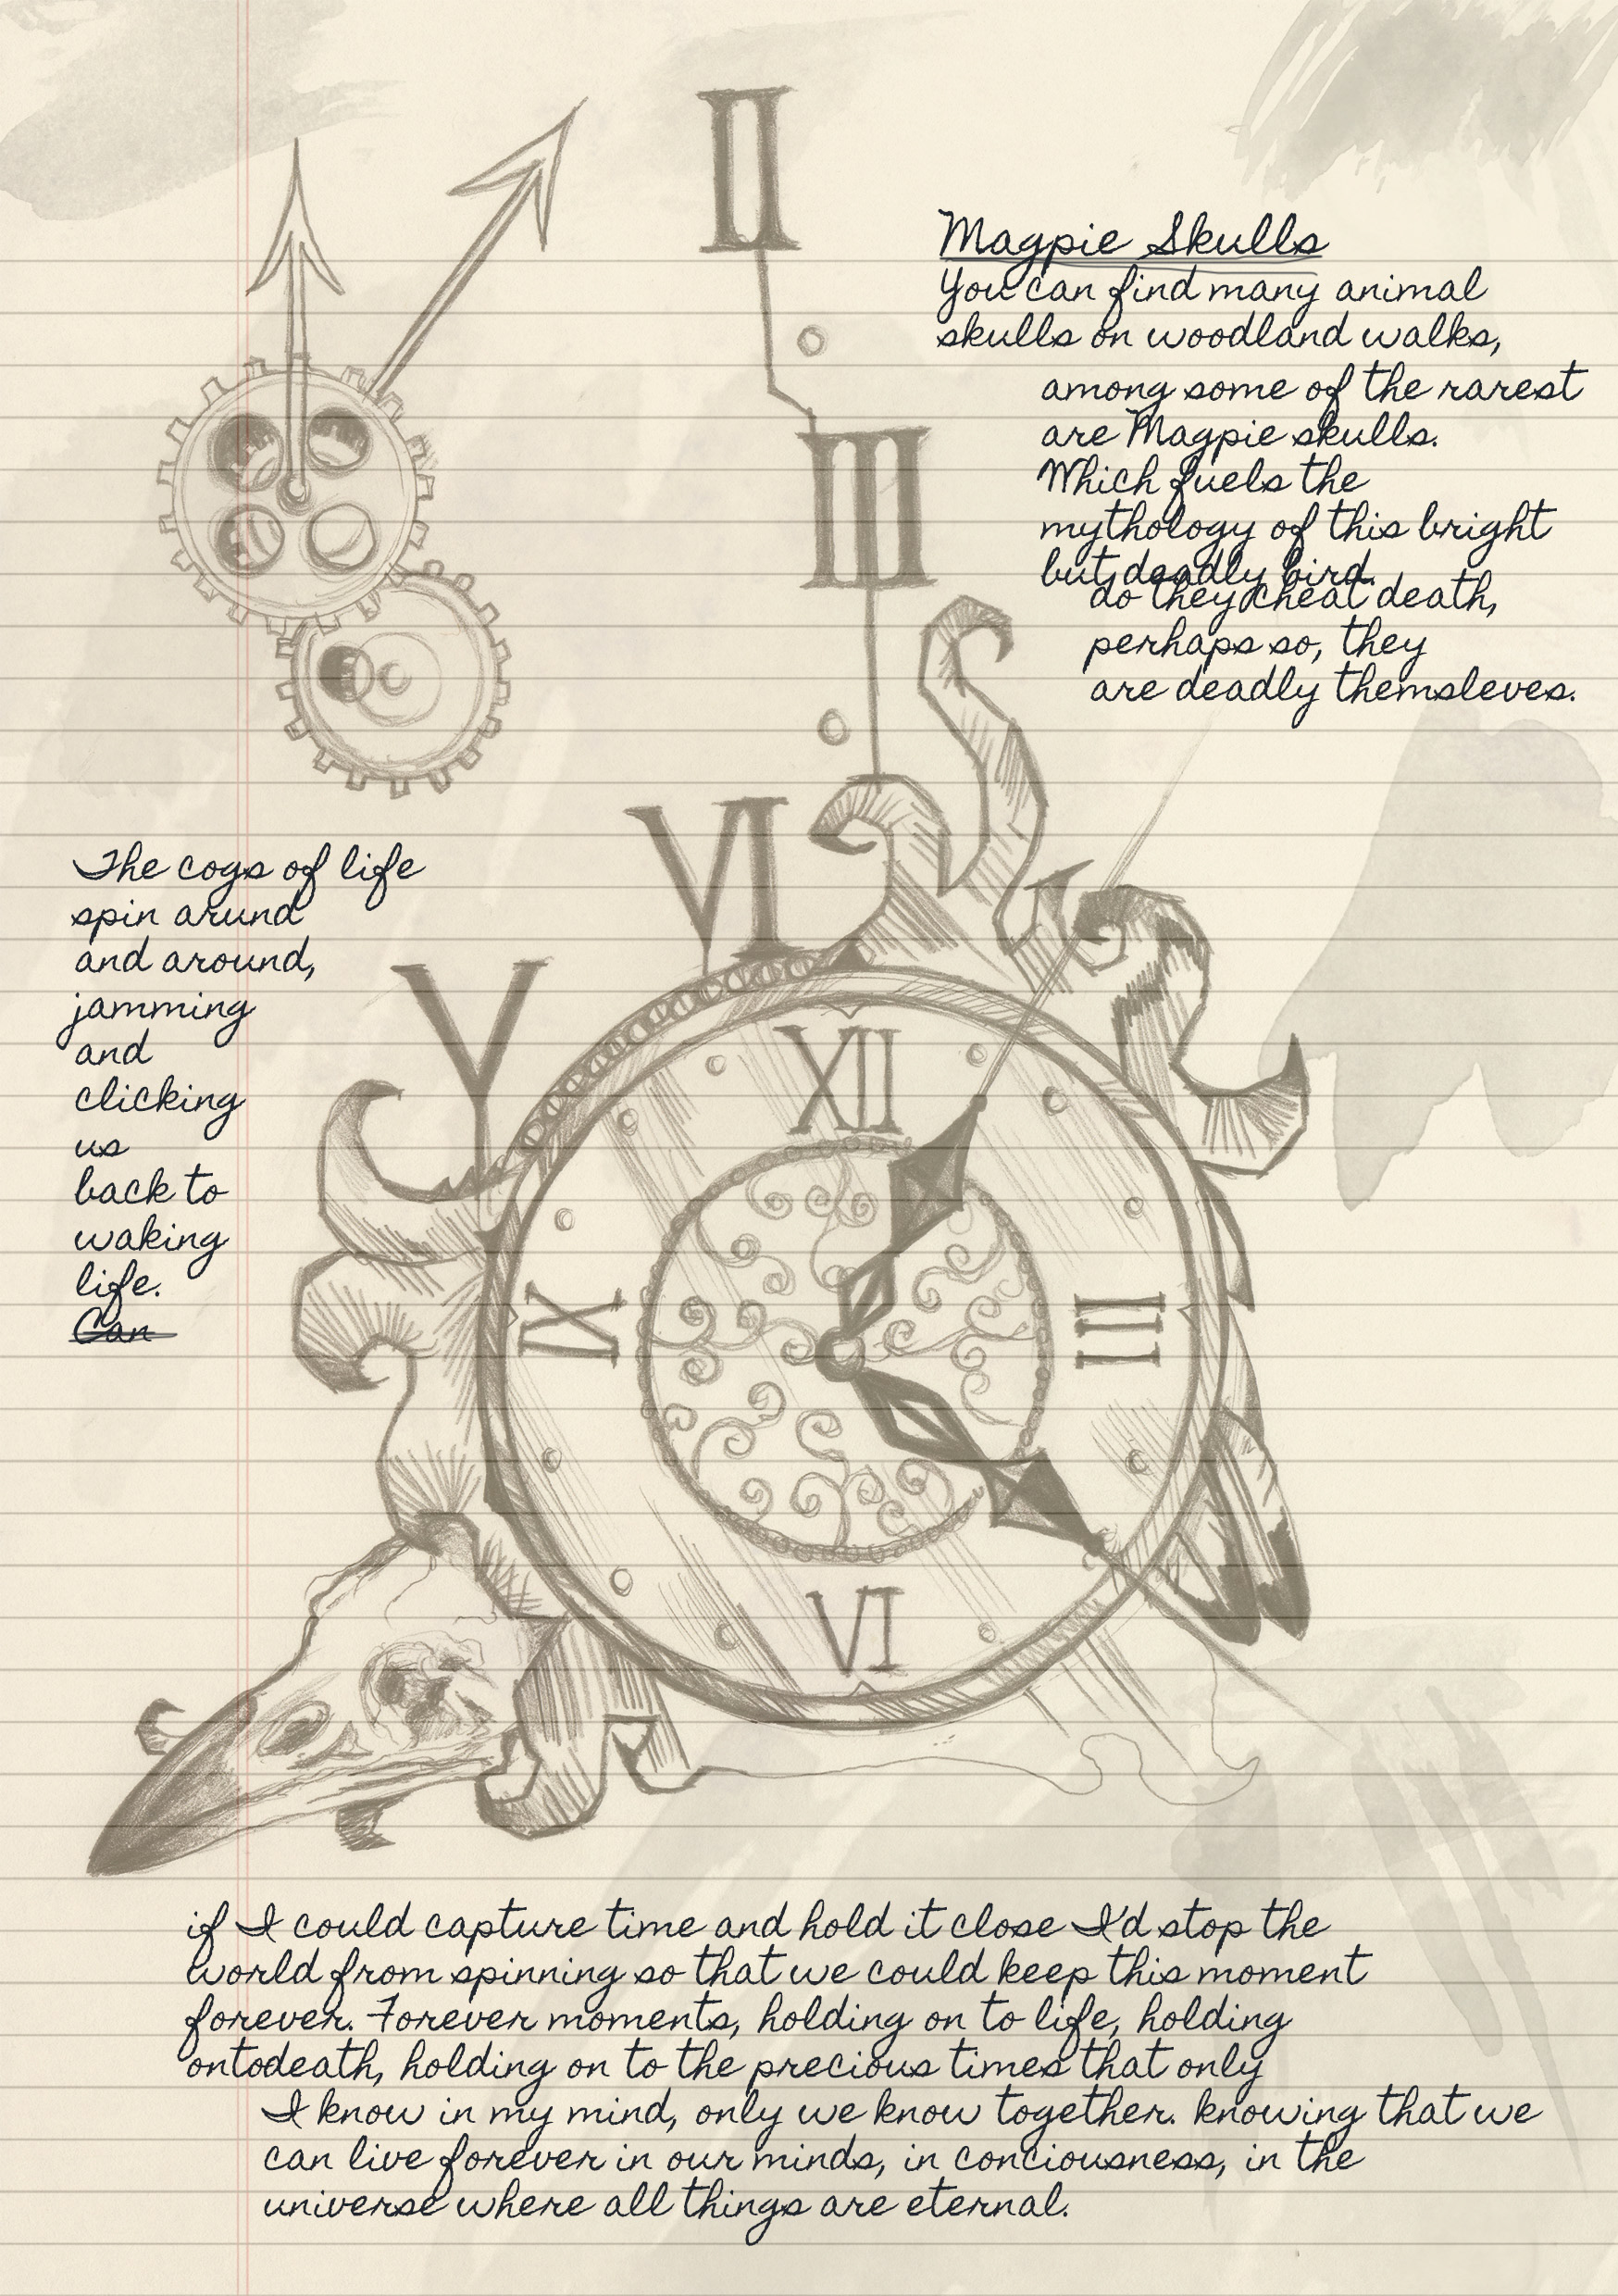 II
Magpie Skulls
You can find many animal
skulls on woodland walks,
among some of the rarest
are Magpie skulls.
Which fuels the
mythology of this bright
but deadly bird.
do they cheat death,
perhaps so, they
are deadly themsleves.
III
VI
The cogs of life
spin arund
and around,
jamming
and
clicking
us
back to
waking
life.
Can
V
I
XII
IX
III
VI
if I could capture time and hold it close I'd stop the
world from spinning so that we could keep this moment
forever. Forever moments, holding on to life, holding
ontodeath, holding on to the precious times that only
I know in my mind, only we know together. knowing that we
can live forever in our minds, in conciousness, in the
universe where all things are eternal.